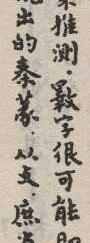 推測。數字很可能
出的秦篆.从支.庶